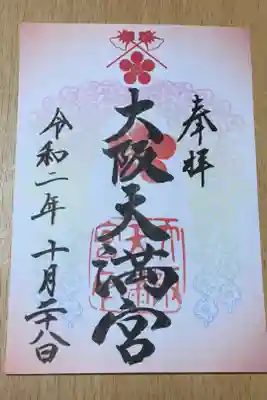 奉拝
大阪天満宮
令和二年十月二十八日